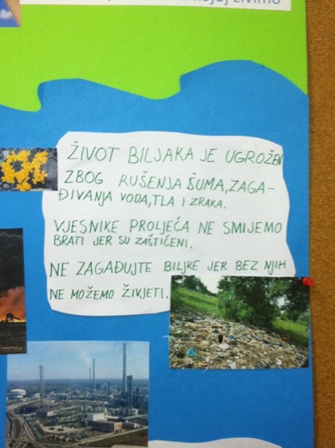 živimo
ŽIVOT BILJAKA JE UGROŽEN
ZBOG RUŠENJA ŠUMA,ZAGA-
ĐIVANJA VODA,TLA I ZRAKA.
VJESNIKE PROLJEĆA NE SMIJEMO
BRATI JER SU ZAŠTIĆENI.
NE ZAGAĐUJTE BILJKE JER BEZ NJIH
NE MOŽEMO ŽIVJETI.